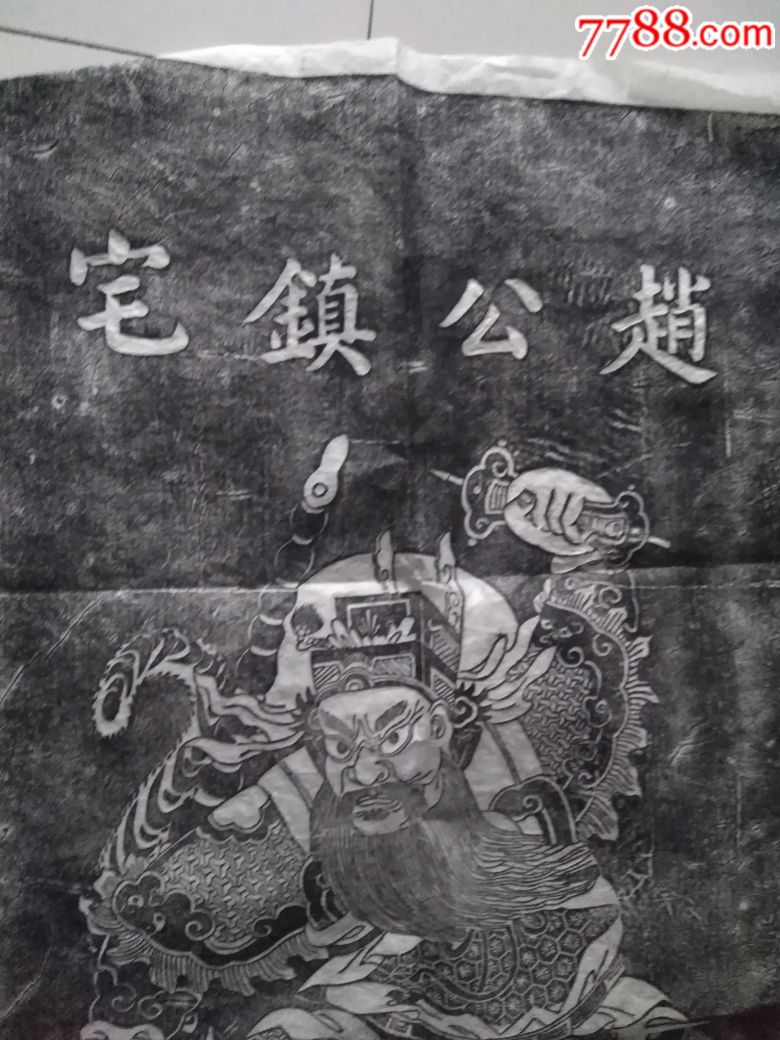 7788.com
趙公鎮宅